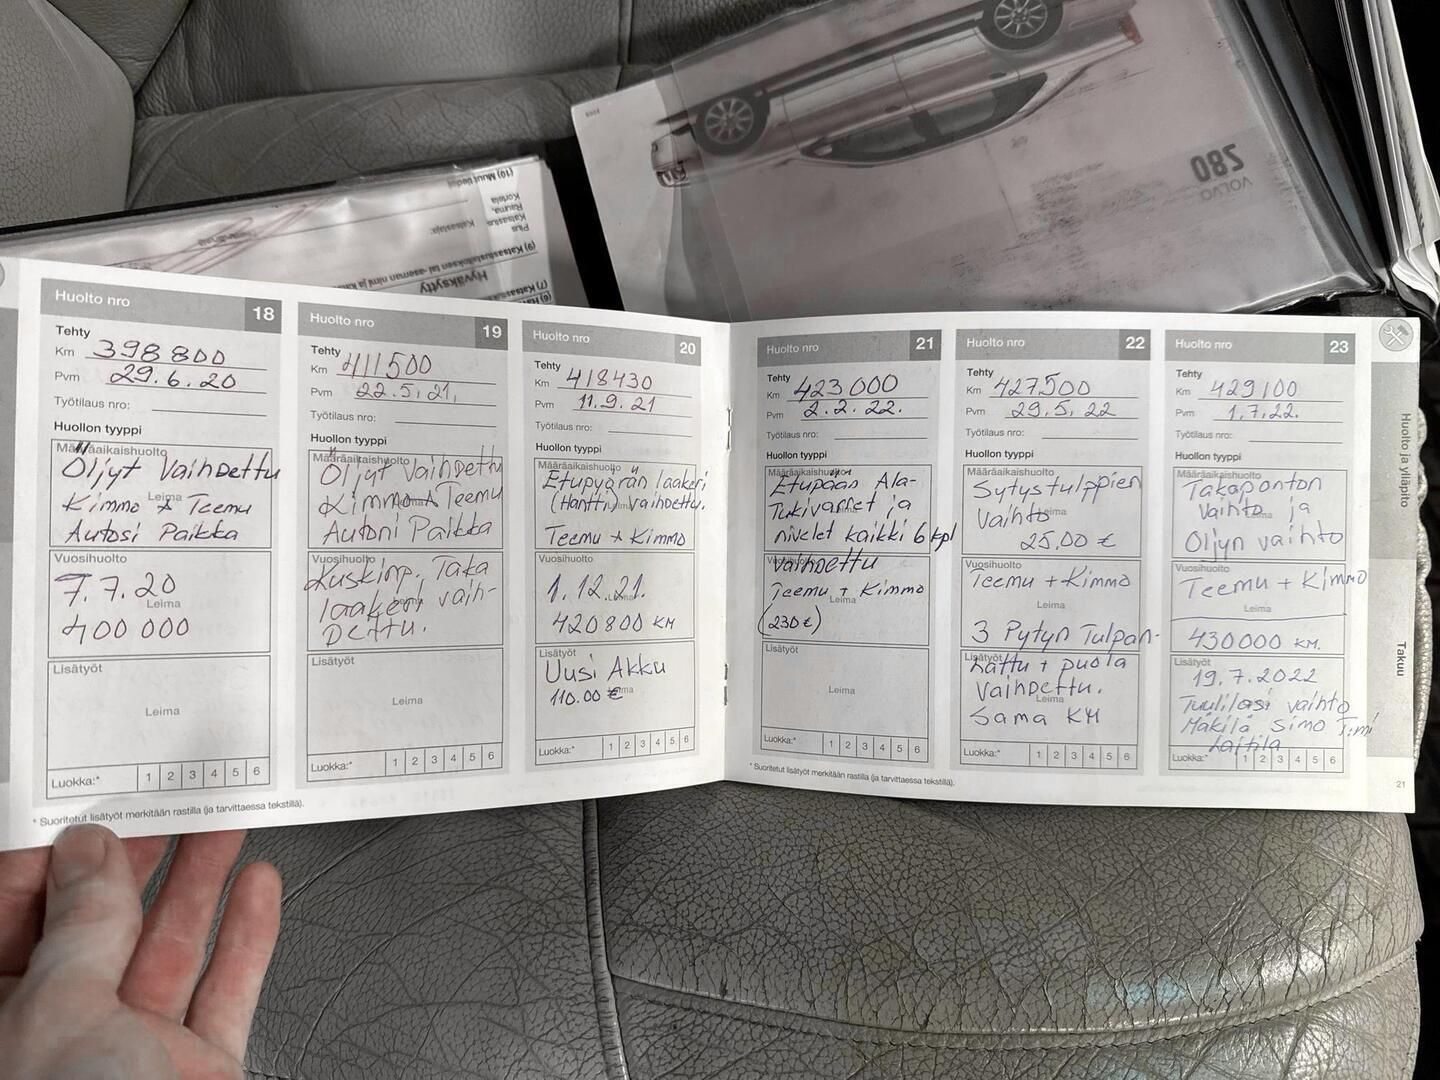 (10) Muut tiedot
Plus
Katsastus
Rauma,
Kortela
Katsastaja:
Hyväksytty
S80
VOLVO
Huolto nro 18
Tehty
Km 398 800
Pvm 29.6.20
Työtilaus nro:
Huollon tyyppi
Määräaikaishuolto
Öljyt Vaihdettu
Leima
Kimmo + Teemu
Autosi Paikka
Vuosihuolto
7.7.20
Leima
400 000
Lisätyöt
Leima
Luokka:* 1 2 3 4 5 6
Huolto nro 19
Tehty
Km 411500
Pvm 22.5.21.
Työtilaus nro:
Huollon tyyppi
Määräaikaishuolto
Öljyt Vaihdettu
Kimmo + Teemu
Autoni Paikka
Vuosihuolto
Taka
laakeri vaih-
dettu.
Lisätyöt
Leima
Luokka:* 1 2 3 4 5 6
Huolto nro 20
Tehty
Km 418430
Pvm 11.9.21
Työtilaus nro:
Huollon tyyppi
Määräaikaishuolto
Etupyörän laakeri
(Hantti) vaihdettu.
Teemu + Kimmo
Vuosihuolto
1.12.21.
Leima
420800 KM
Lisätyöt
Uusi Akku
110.00 €
Luokka:* 1 2 3 4 5 6
* Suoritetut lisätyöt merkitään rastilla (ja tarvittaessa tekstillä).
Huolto nro 21
Tehty
Km 423000
Pvm 2.2.22.
Työtilaus nro:
Huollon tyyppi
Määräaikaishuolto
Etupään Ala-
Tukivarret ja
nivelet kaikki 6 kpl
Vaihdettu
Vuosihuolto
Teemu + Kimmo
Leima
(230 €)
Lisätyöt
Leima
Luokka:* 1 2 3 4 5 6
Huolto nro 22
Tehty
Km 427500
Pvm 29.5.22
Työtilaus nro:
Huollon tyyppi
Määräaikaishuolto
Sytystulppien
Vaihto
Leima
25.00 €
Vuosihuolto
Teemu + Kimmo
Leima
3 Pytyn Tulpan-
Lisätyöt
hattu + puola
vaihdettu.
Leima
Sama KM
Luokka:* 1 2 3 4 5 6
Huolto nro 23
Tehty
Km 429100
Pvm 1.7.22.
Työtilaus nro:
Huollon tyyppi
Määräaikaishuolto
Takaponton
Vaihto ja
Leima
Öljyn vaihto
Vuosihuolto
Teemu + Kimmo
Leima
430000 KM.
Lisätyöt
19.7.2022
Tuulilasi vaihto
Mäkilä Simo T:mi
Laitila
Luokka:* 1 2 3 4 5 6
* Suoritetut lisätyöt merkitään rastilla (ja tarvittaessa tekstillä).
21
Huolto ja ylläpito
Takuu